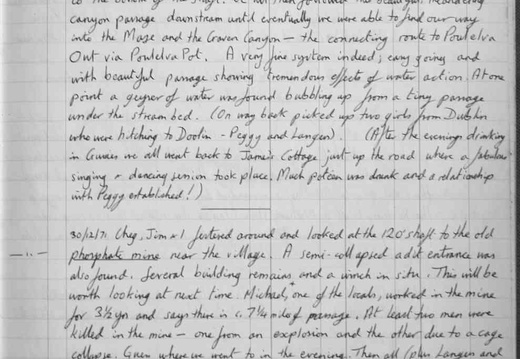 to the bottom of the shaft. We then followed the beautiful meandering
canyon passage downstream until eventually we were able to find our way
into the Maze and the Craven Canyon — the connecting route to Poulelva
Out via Poulelva Pot. A very fine system indeed; easy going and
with beautiful passage showing tremendous effects of water action. At one
point a geyser of water was found bubbling up from a tiny passage
under the stream bed. (On way back picked up two girls from Dublin
who were hitching to Doolin - Peggy and Langen). (After the evenings drinking
in Gussies we all went back to Jamie's Cottage just up the road where a fabulous
singing & dancing session took place. Much poteen was drunk and a relationship
with Peggy established!)
30/12/71 Cheg, Jim & I festered around and looked at the 120' shaft to the old
— " — phosphate mine near the village. A semi-collapsed adit entrance was
also found. Several building remains and a winch in situ. This will be
worth looking at next time. Michael, one of the locals, worked in the mine
for 3½ yrs and says there is c. 7¼ miles of passage. At least two men were
killed in the mine — one from an explosion and the other due to a cage
collapse. where we went to in the evening. Then all (plus Langen and